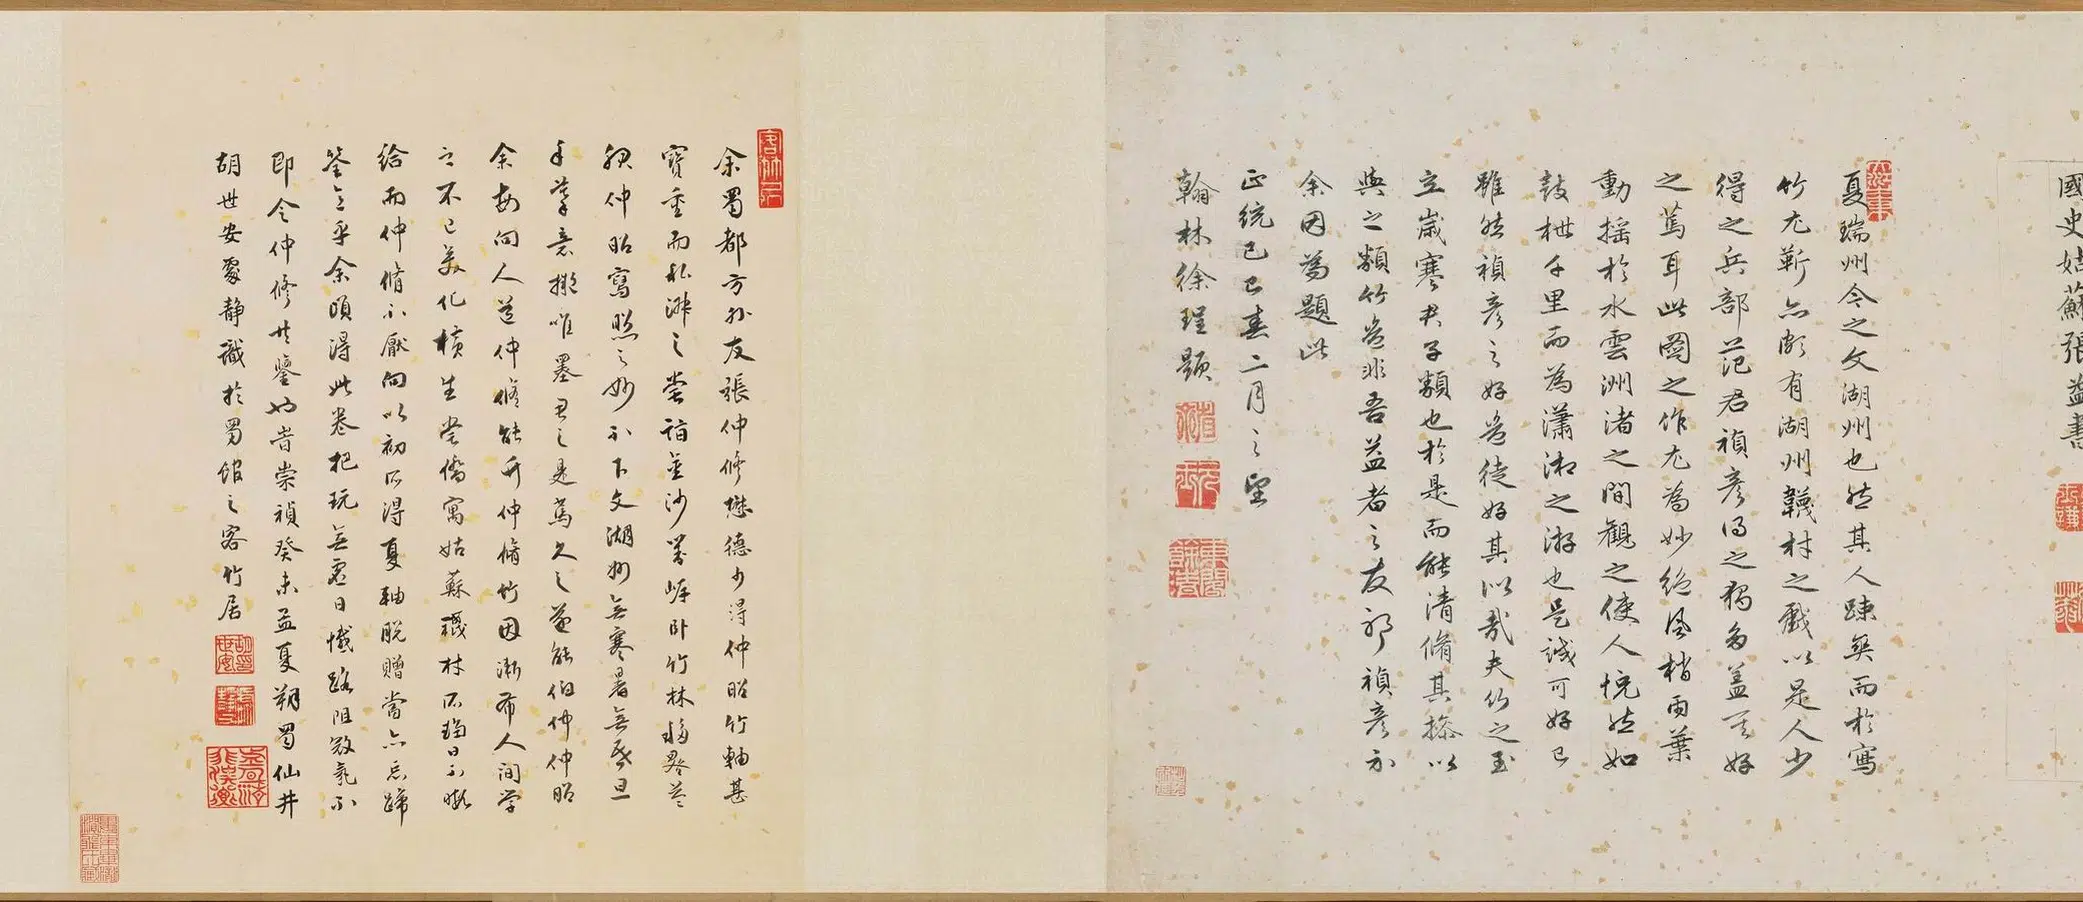 國史姑蘇張益書
夏瑞州今之文湖州也然其人踈矣而於寫
竹尤靳亦頗有湖州韈材之戲以是人少
得之兵部范君禎彥得之獨多蓋其好
之篤耳此圖之作尤為妙絕風梢雨葉
動搖於水雲洲渚之間觀之使人恍然如
鼓枻千里而為瀟湘之游也是誠可好已
雖然禎彥之好豈徒好其似哉夫竹之玉
立歲寒君子類也於是而能清脩其操以
與之類竹豈非吾益者之友耶禎彥求
余因為題此
正統己巳春二月之望
翰林徐珵題
余蜀都方外友張仲修懋德少得仲昭竹軸甚
寶重而私淑之嘗詣金沙
仲昭寫照之妙不下文湖州無寒暑無昏旦
手摹意擬唯墨君之是篤久之遂能伯仲仲昭
余每向人道仲脩能升仲脩竹因漸布人間學
之不已
給而仲脩不厭向以初所得夏軸脫贈當亦忘蹄
筌意乎余頃得此卷把玩無虛日
即令仲修共鑒也崇禎癸未孟夏朔蜀仙井
胡世安處靜識於蜀館之容竹居